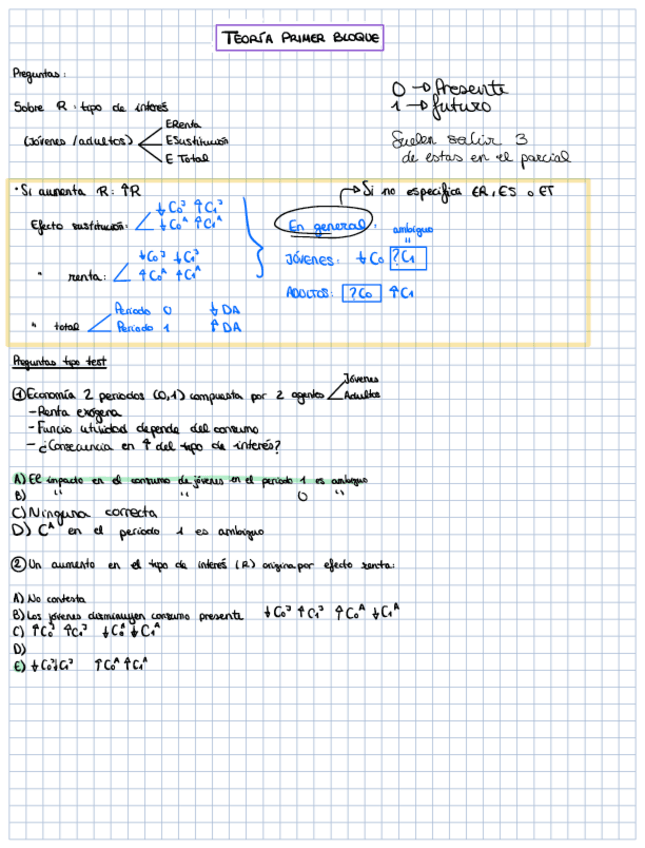 TEORÍA PRIMER BLOQUE
Preguntas:
0 → Presente
1 → futuro
Sobre R: tipo de interés
(Jóvenes /adultos)
ERenta
ESustitución
E Total
Suelen salir 3
de estas en el parcial
· Si aumenta R: ↑R
→ Si no especifica ER, ES o ET
Efecto sustitución:
↓C₀ᴶ ↑C₁ᴶ
↓C₀ᴬ ↑C₁ᴬ
" renta:
↓C₀ᴶ ↓C₁ᴶ
↑C₀ᴬ ↑C₁ᴬ
" total
Período 0 ↓DA
Período 1 ↑DA
En general:
ambiguo
"
JÓVENES: ↓C₀ ?C₁
ADULTOS: ?C₀ ↑C₁
Preguntas tipo test
① Economía 2 periodos (0,1) compuesta por 2 agentes
Jóvenes
Adultos
- Renta exógena
- Funcio utilidad depende del consumo
- ¿Consecuencia en ↑ del tipo de interés?
A) El impacto en el consumo de jóvenes en el período 1 es ambiguo
B) " " 0 "
C) Ninguna correcta
D) Cᴬ en el período 1 es ambiguo
② Un aumento en el tipo de interés (R) origina por efecto renta:
A) No contesta
B) Los jóvenes disminuyen consumo presente ↓C₀ᴶ ↑C₁ᴶ ↑C₀ᴬ ↓C₁ᴬ
C) ↑C₀ᴶ ↑C₁ᴶ ↓C₀ᴬ ↓C₁ᴬ
D)
E) ↓C₀ᴶ↓C₁ᴶ ↑C₀ᴬ ↑C₁ᴬ